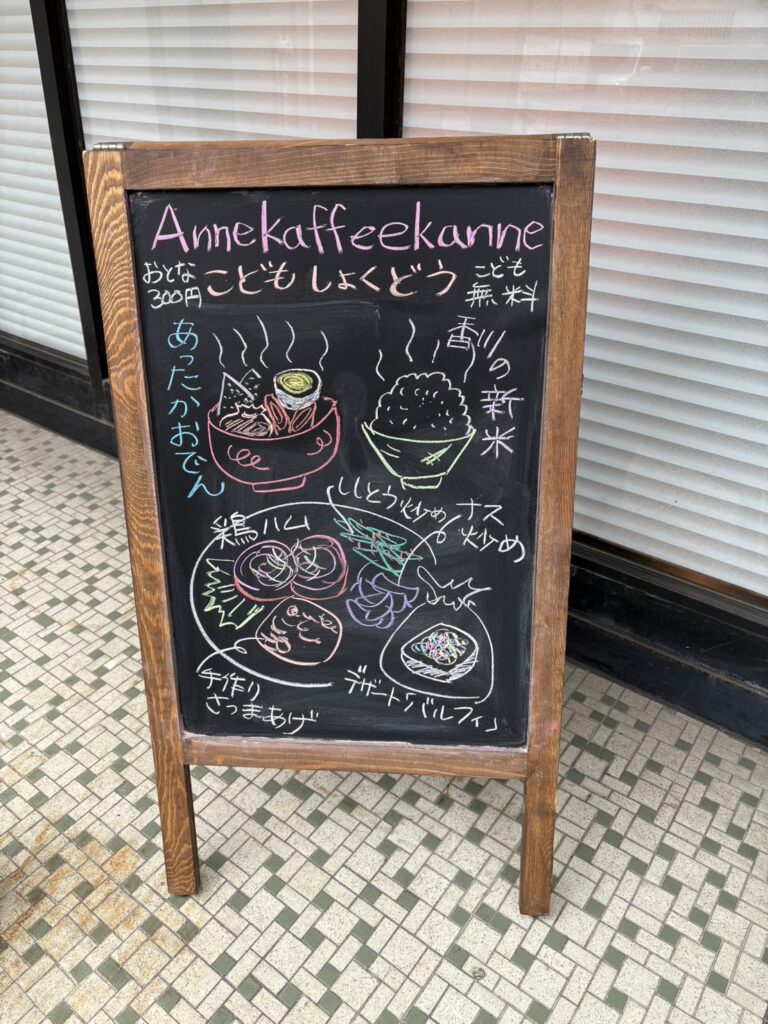 Annekaffeekanne
おとな
300円
こどもしょくどう
こども
無料
あったかおでん
香川の新米
鶏ハム
ししとう炒め
ナス
炒め
手作り
さつまあげ
デザート「バルフィ」